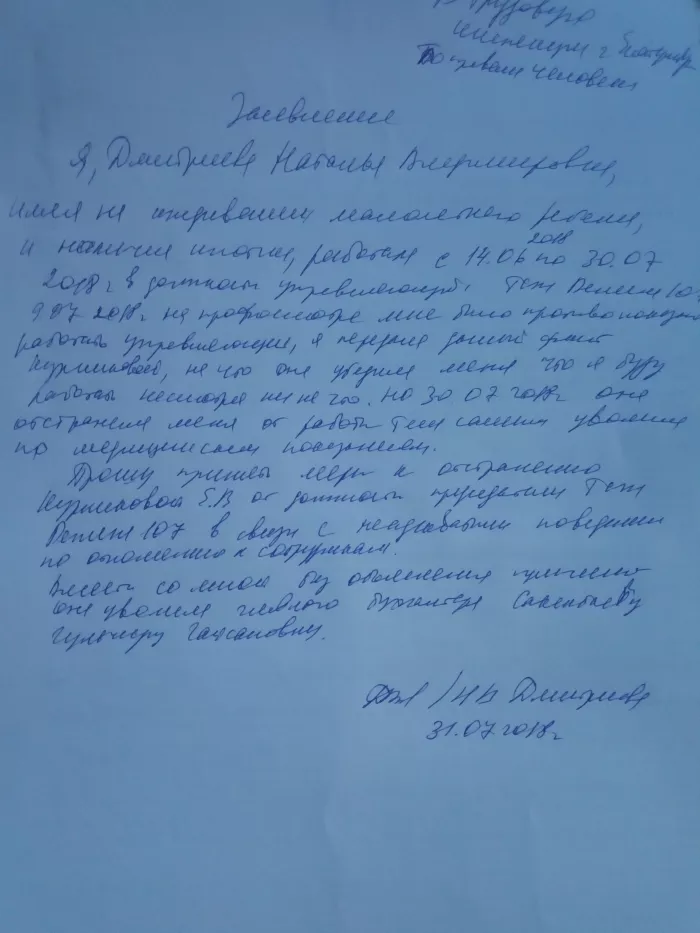 В трудовую
инспекцию г
по правам человека
Заявление
Я, Дмитриева Наталья Владимировна,
имея на иждивении малолетнего ребенка,
и наличия ипотеки, работала с 14.06 2018 по 30.07
2018г в должности управляющей Тсж 107
9 07 2018г на профосмотре мне было противопоказано
работать управляющей, я передала данный факт
Куршаковой, на что она убедила меня что я буду
работать несмотря ни на что. Но 30 07 2018г она
отстранила меня от работы тем самым уволила
по медицинским показаниям.
Прошу принять меры к отстранению
Е.В от должности председателя Тсж
107 в связи с неадекватным поведением
по отношению к сотрудникам.
Вместе со мной без объяснения причины
она уволила главного бухгалтера
/ НВ Дмитриева
31.07 2018г